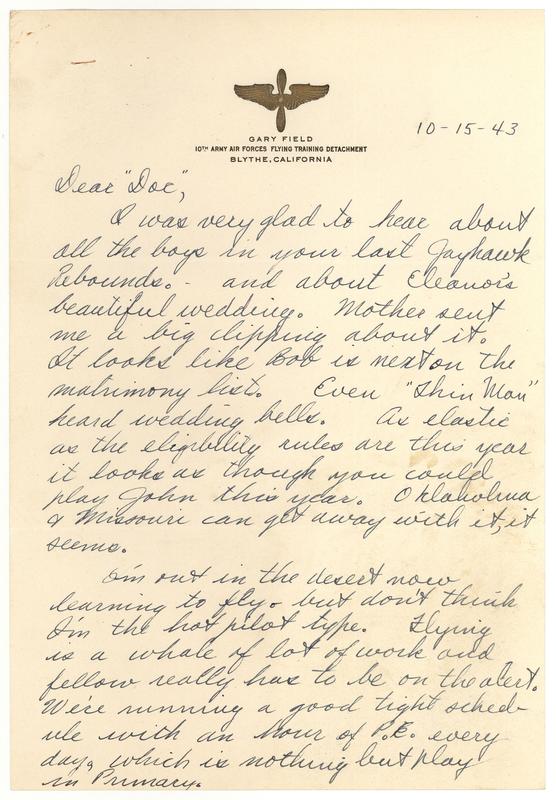 GARY FIELD
10TH ARMY AIR FORCES FLYING TRAINING DETACHMENT
BLYTHE, CALIFORNIA
10-15-43
Dear "Doc",
I was very glad to hear about
all the boys in your last Jayhawk
Rebounds. - and about Eleanor's
beautiful wedding. Mother sent
me a big clipping about it.
It looks like Bob is next on the
matrimony list. Even "Thin Man"
heard wedding bells. As elastic
as the eligibility rules are this year
it looks as though you could
play John this year. Oklaholma
& Missouri can get away with it, it
seems.
I'm out in the desert now
learning to fly - but don't think
I'm the hot pilot type. Flying
is a whale of lot of work and
fellow really has to be on the alert.
We're running a good tight sched-
ule with an hour of P.E. every
day, which is nothing but play
in Primary.